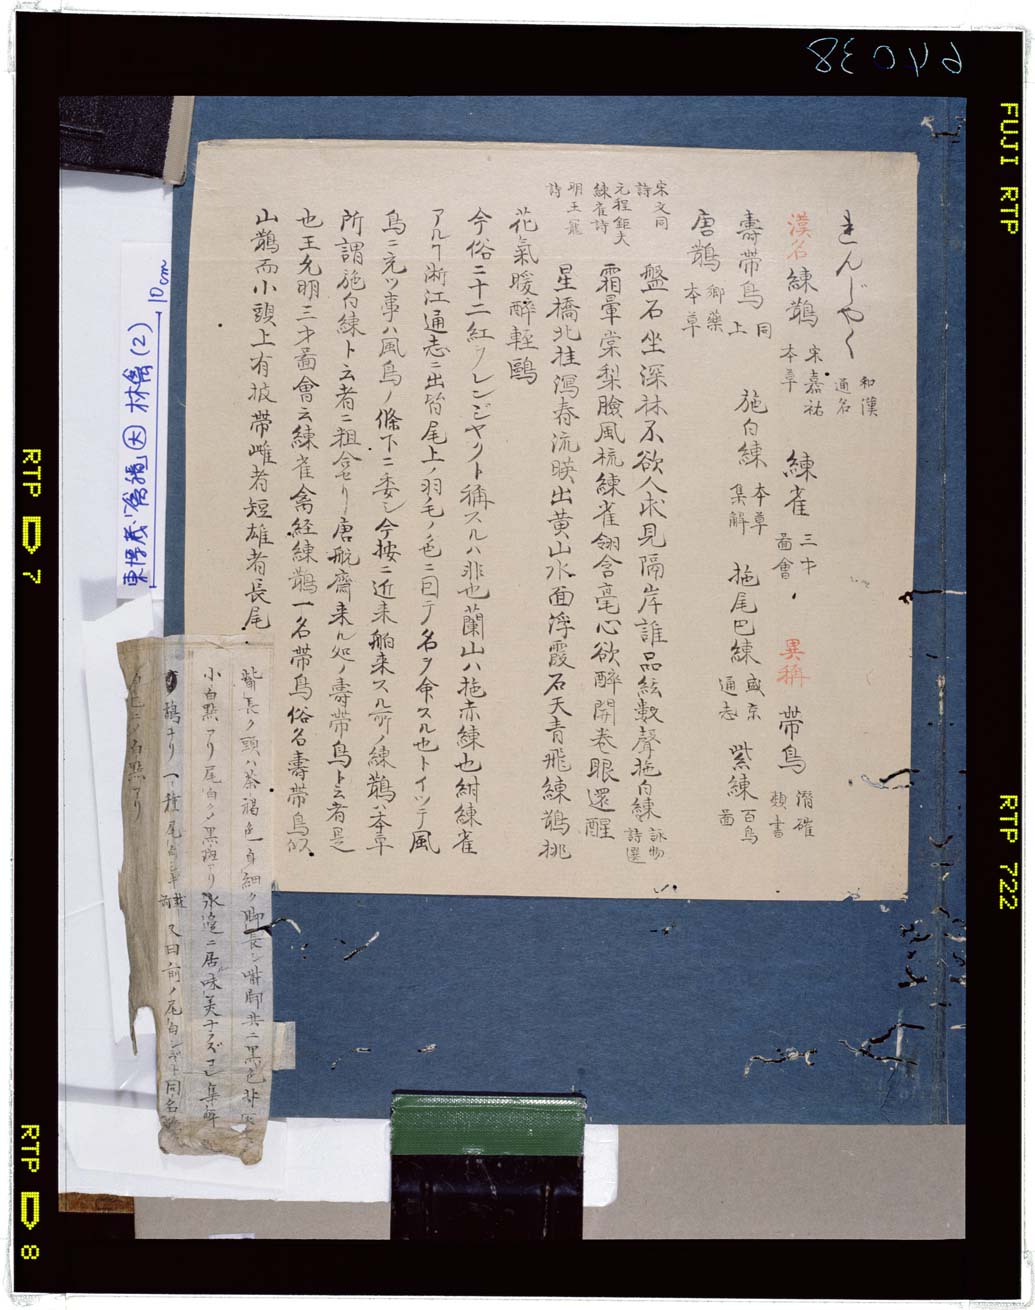 れんじやく 和漢通名
漢名 練鵲 宋嘉祐本草 練雀 三才圖會 異稱 帶鳥 潛確類書
壽帶鳥 同上 拖白練 本草集解 拖尾巴練 盛京通志 紫練 百鳥圖
唐鵲 鄕藥本草
宋文同詩 盤石坐深林不欲人求見隔岸誰品絃數聲拖白練 詠物詩選
元程鉅夫練雀詩 霜暈棠梨臉風梳練雀翎含毫心欲醉開卷眼還醒
明王寵詩 星橋北挂瀉春流暎出黄山水面浮霞石天青飛練鵲桃
花氣暖醉輕鷗
今俗ニ十二紅ヲレンジヤクト稱スルハ非也蘭山ハ拖赤練也紺練雀
アルヿ浙江通志ニ出皆尾上ノ羽毛ノ色ニ因テ名ヲ命スル也トイツテ風
鳥ニ充ツ事ハ風鳥ノ條下ニ委シ今按ニ近来舶来スル所ノ練鵲ハ本草
所謂拖白練ト云者ニ粗合セリ唐舩齎来ル処ノ壽帶鳥ト云者是
也王允明三才圖會云練雀禽経練鵲一名帶鳥俗名壽帶鳥似
山鵲而小頭上有披帶雌者短雄者長尾
觜長ク頭ハ茶褐色身細ク脚長シ觜脚共ニ黒色
小白點アリ尾白ク黒斑アリ水邉ニ居味美ナラズ 集解
鷸ナリ一種尾 又曰前ノ尾白 同名
色ニ白點アリ
東博蔵「禽譜」大 林禽(2)
10cm
FUJI RTP
RTP 722
RTP 7
RTP 8